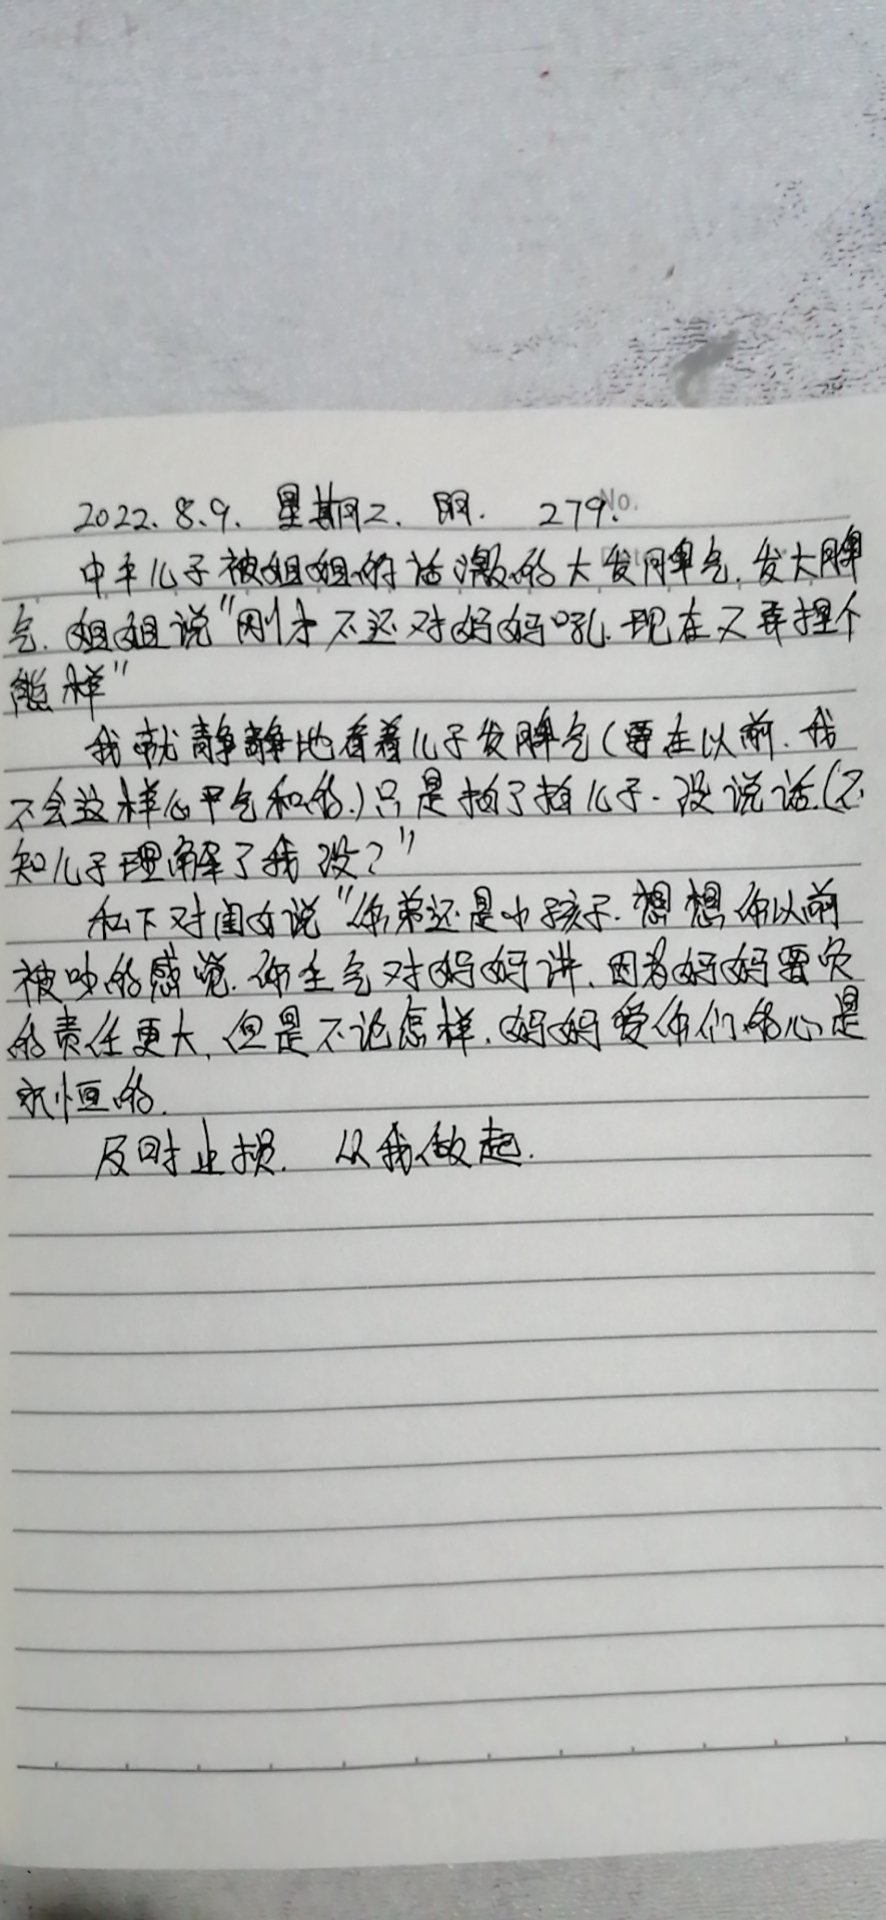 No.
2022.8.9. 星期二. 阴. 279.
中午儿子被姐姐的话激的大发脾气.发大脾
气.姐姐说"刚才不还对妈妈吼.现在又要捏个
熊样"
我就静静地看着儿子发脾气(要在以前.我
不会这样心平气和的.)只是拍了拍儿子.没说话.(不
知儿子理解了我没?"
私下对闺女说"你弟还是小孩子.想想你以前
被吵的感觉.你生气对妈妈讲.因为妈妈要负
的责任更大.但是不论怎样.妈妈爱你们的心是
永恒的.
及时止损. 从我做起.